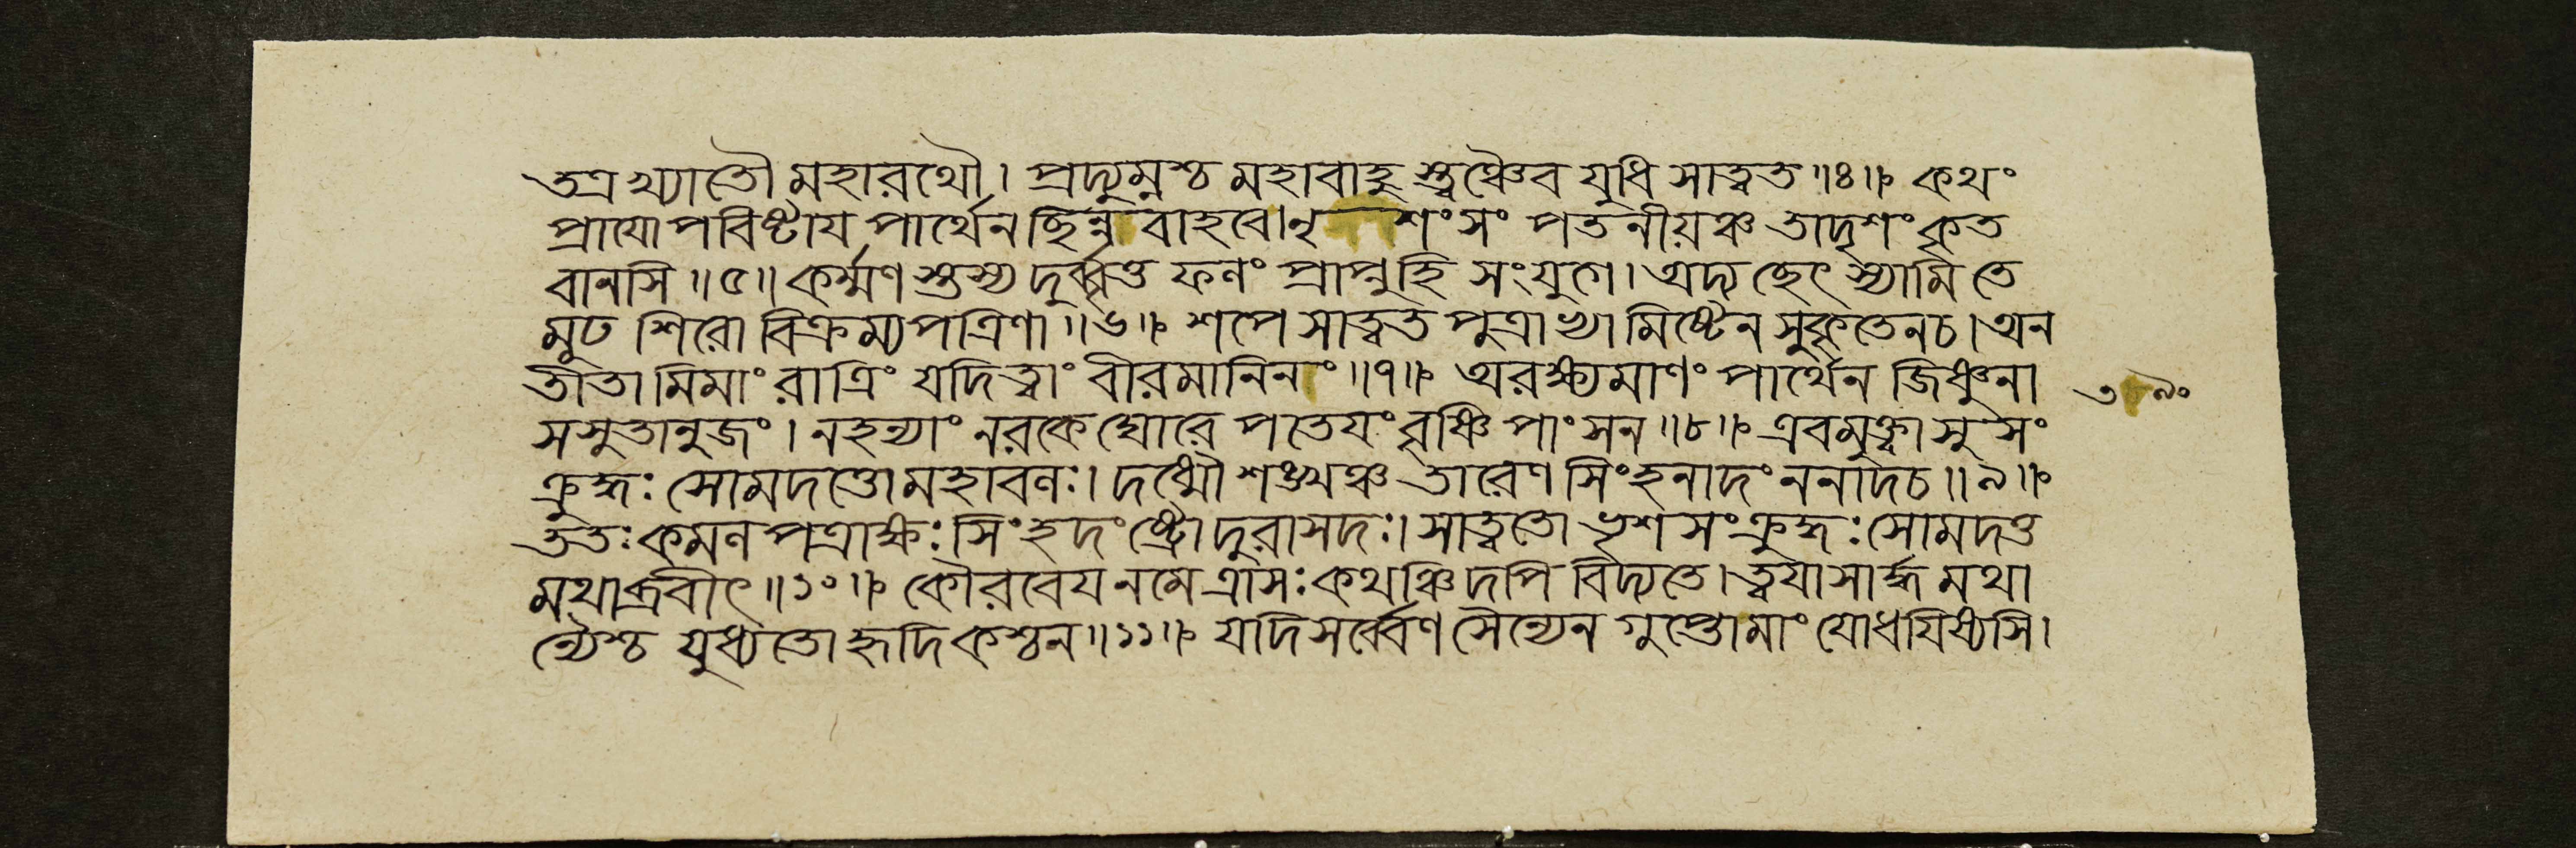 তত্র খ্যাতৌ মহারথৌ। প্রদ্যুম্নশ্চ মহাবাহু স্ত্বঞ্চৈব যুধি সাত্বত॥৪॥ কথং
প্রাযোপবিষ্টায পার্থেন ছিন্ন বাহবে। নৃশংসং পতনীয়ঞ্চ তাদৃশং কৃত
বানসি॥৫॥ কর্ম্মণ স্তস্য দুর্ব্বৃত্ত ফলং প্রাপ্নুহি সংযুগে। অদ্য ছেৎস্যামি তে
মূঢ শিরো বিক্রম্য পত্রিণা॥৬॥ শপে সাত্বত পুত্রাভ্যামিষ্টেন সুকৃতেন চ। অন
তীতামিমাং রাত্রিং যদি ত্বাং বীরমানিনং॥৭॥ অরক্ষ্যমাণং পার্থেন জিষ্ণুনা
সসুতানুজং। ন হন্যাং নরকে ঘোরে পতেযং বৃষ্ণি পাংসন॥৮॥ এবমুক্ত্বা সুসং
ক্রুদ্ধঃ সোমদত্তো মহাবলঃ। দধ্মৌ শঙ্খঞ্চ তারেণ সিংহনাদং ননাদ চ॥৯॥
ততঃ কমল পত্রাক্ষঃ সিংহদংষ্ট্রো দুরাসদঃ। সাত্বতো ভৃশ সংক্রুদ্ধঃ সোমদত্ত
মথাব্রবীৎ॥১০॥ কৌরবেয ন মে ত্রাসঃ কথঞ্চিদপি বিদ্যতে। ত্বযা সার্দ্ধ মথা
ন্যৈশ্চ যুধ্যতো হৃদি কশ্চন॥১১॥ যদি সর্ব্বেণ সৈন্যেন গুপ্তো মাং যোধযিষ্যসি।